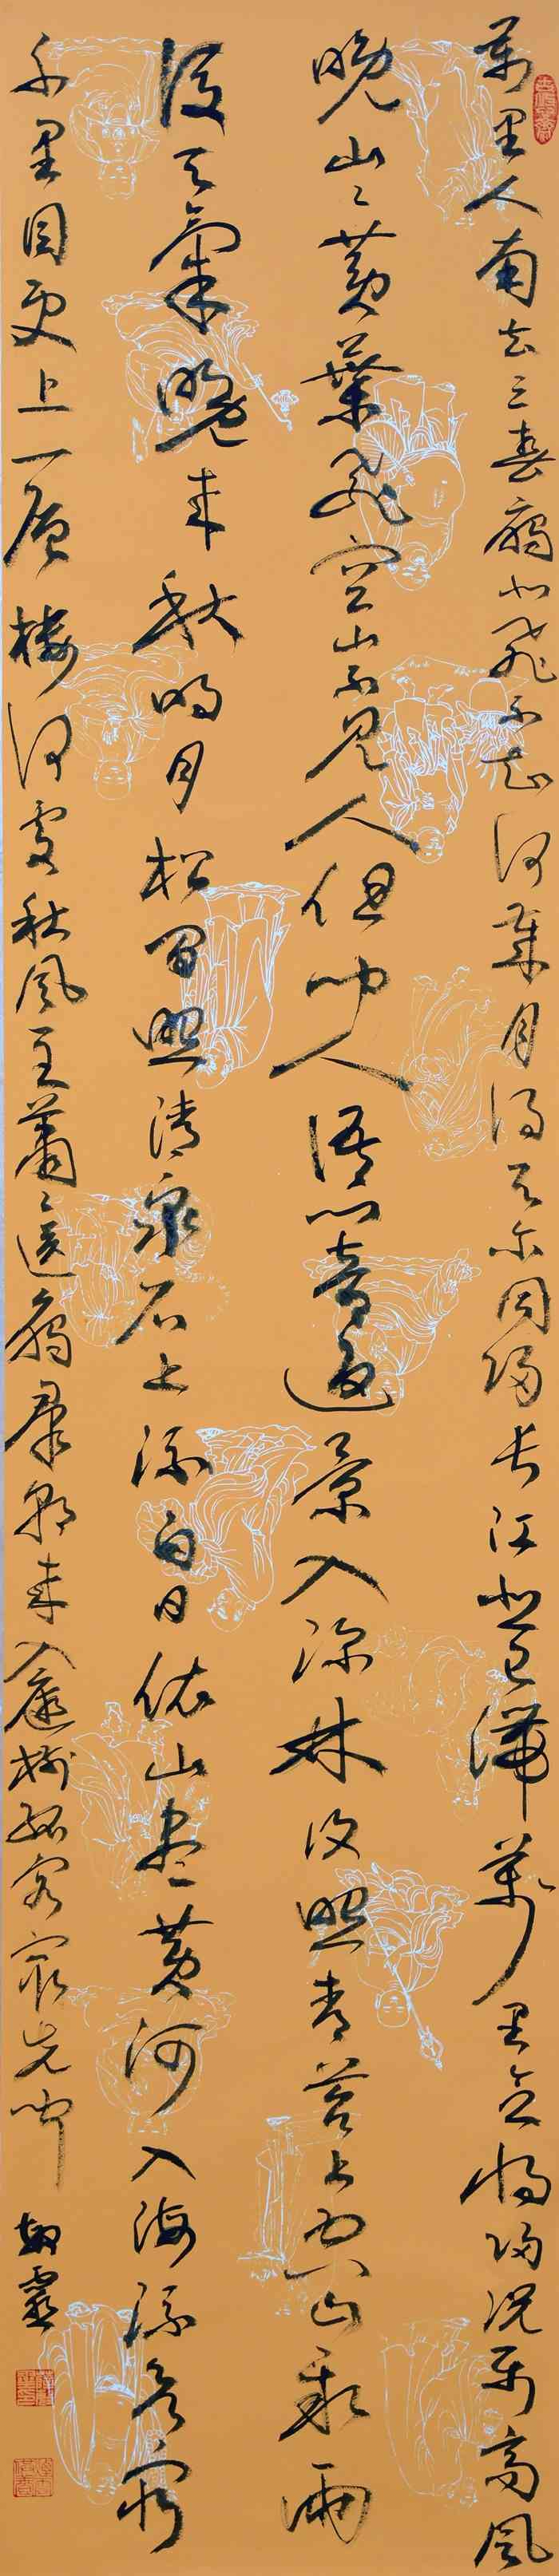 萬里人南去三春雁北飛不知何歲月得與爾同歸長江悲已滯萬里念將歸況屬高風
晚山々黃葉飛空山不見人但聞人語響返景入深林復照青苔上空山新雨
後天氣晚來秋明月松間照清泉石上流白日依山盡黃河入海流欲窮
千里目更上一層樓何處秋風至蕭々送雁群朝來入庭樹孤客最先聞